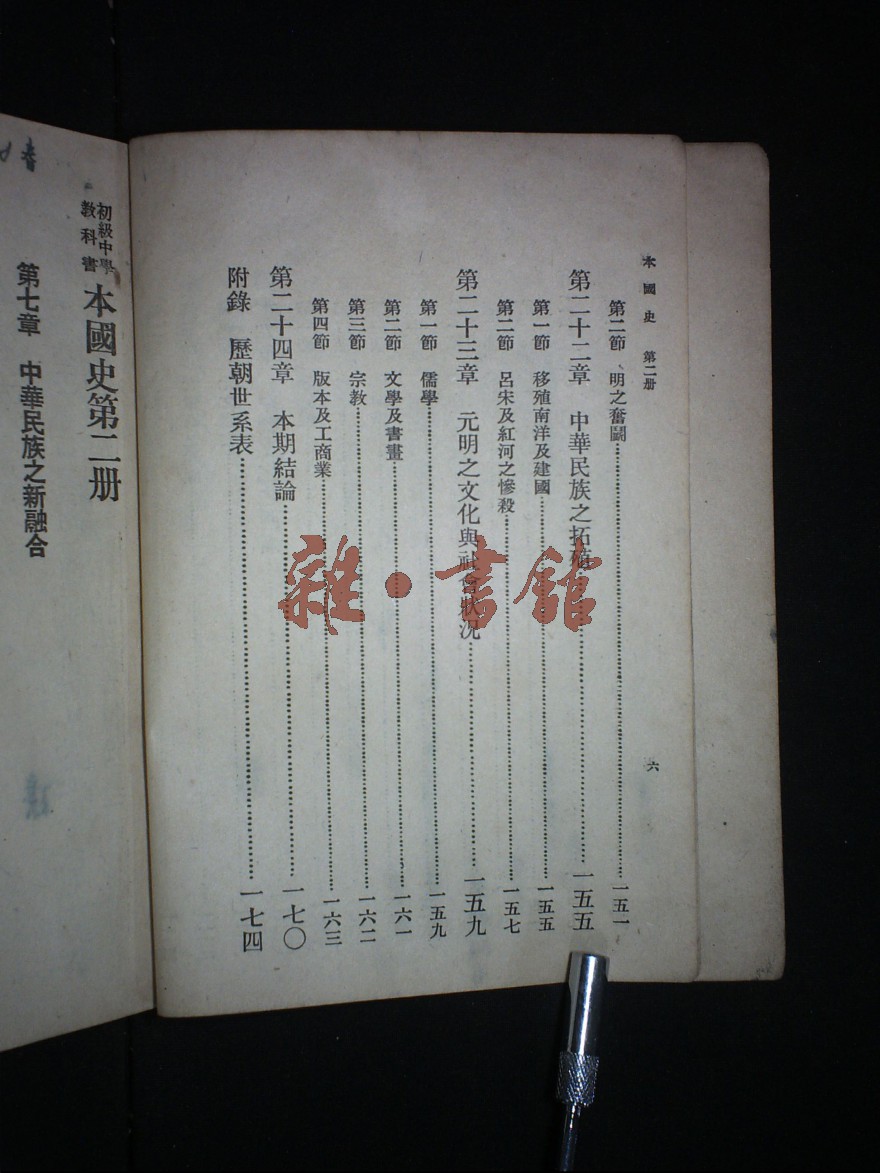 本國史 第二册
六
第二節 明之奮鬪……一五一
第二十二章 中華民族之拓殖……一五五
第一節 移殖南洋及建國……一五五
第二節 呂宋及紅河之慘殺……一五七
第二十三章 元明之文化與社會狀况……一五九
第一節 儒學……一五九
第二節 文學及書畫……一六一
第三節 宗教……一六二
第四節 版本及工商業……一六三
第二十四章 本期結論……一七〇
附錄 歷朝世系表……一七四
初級中學
教科書
本國史第二册
第七章 中華民族之新融合
雜·書館